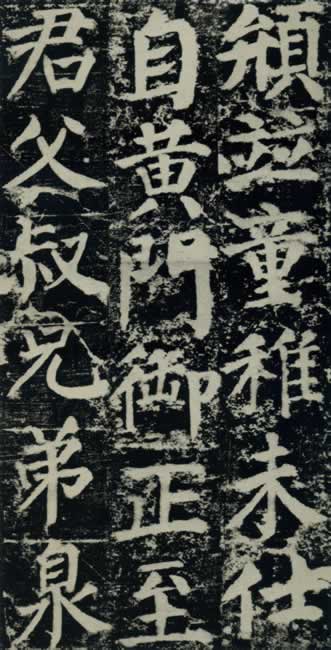 頩並童稚未仕
自黄門御正至
君父叔兄弟泉